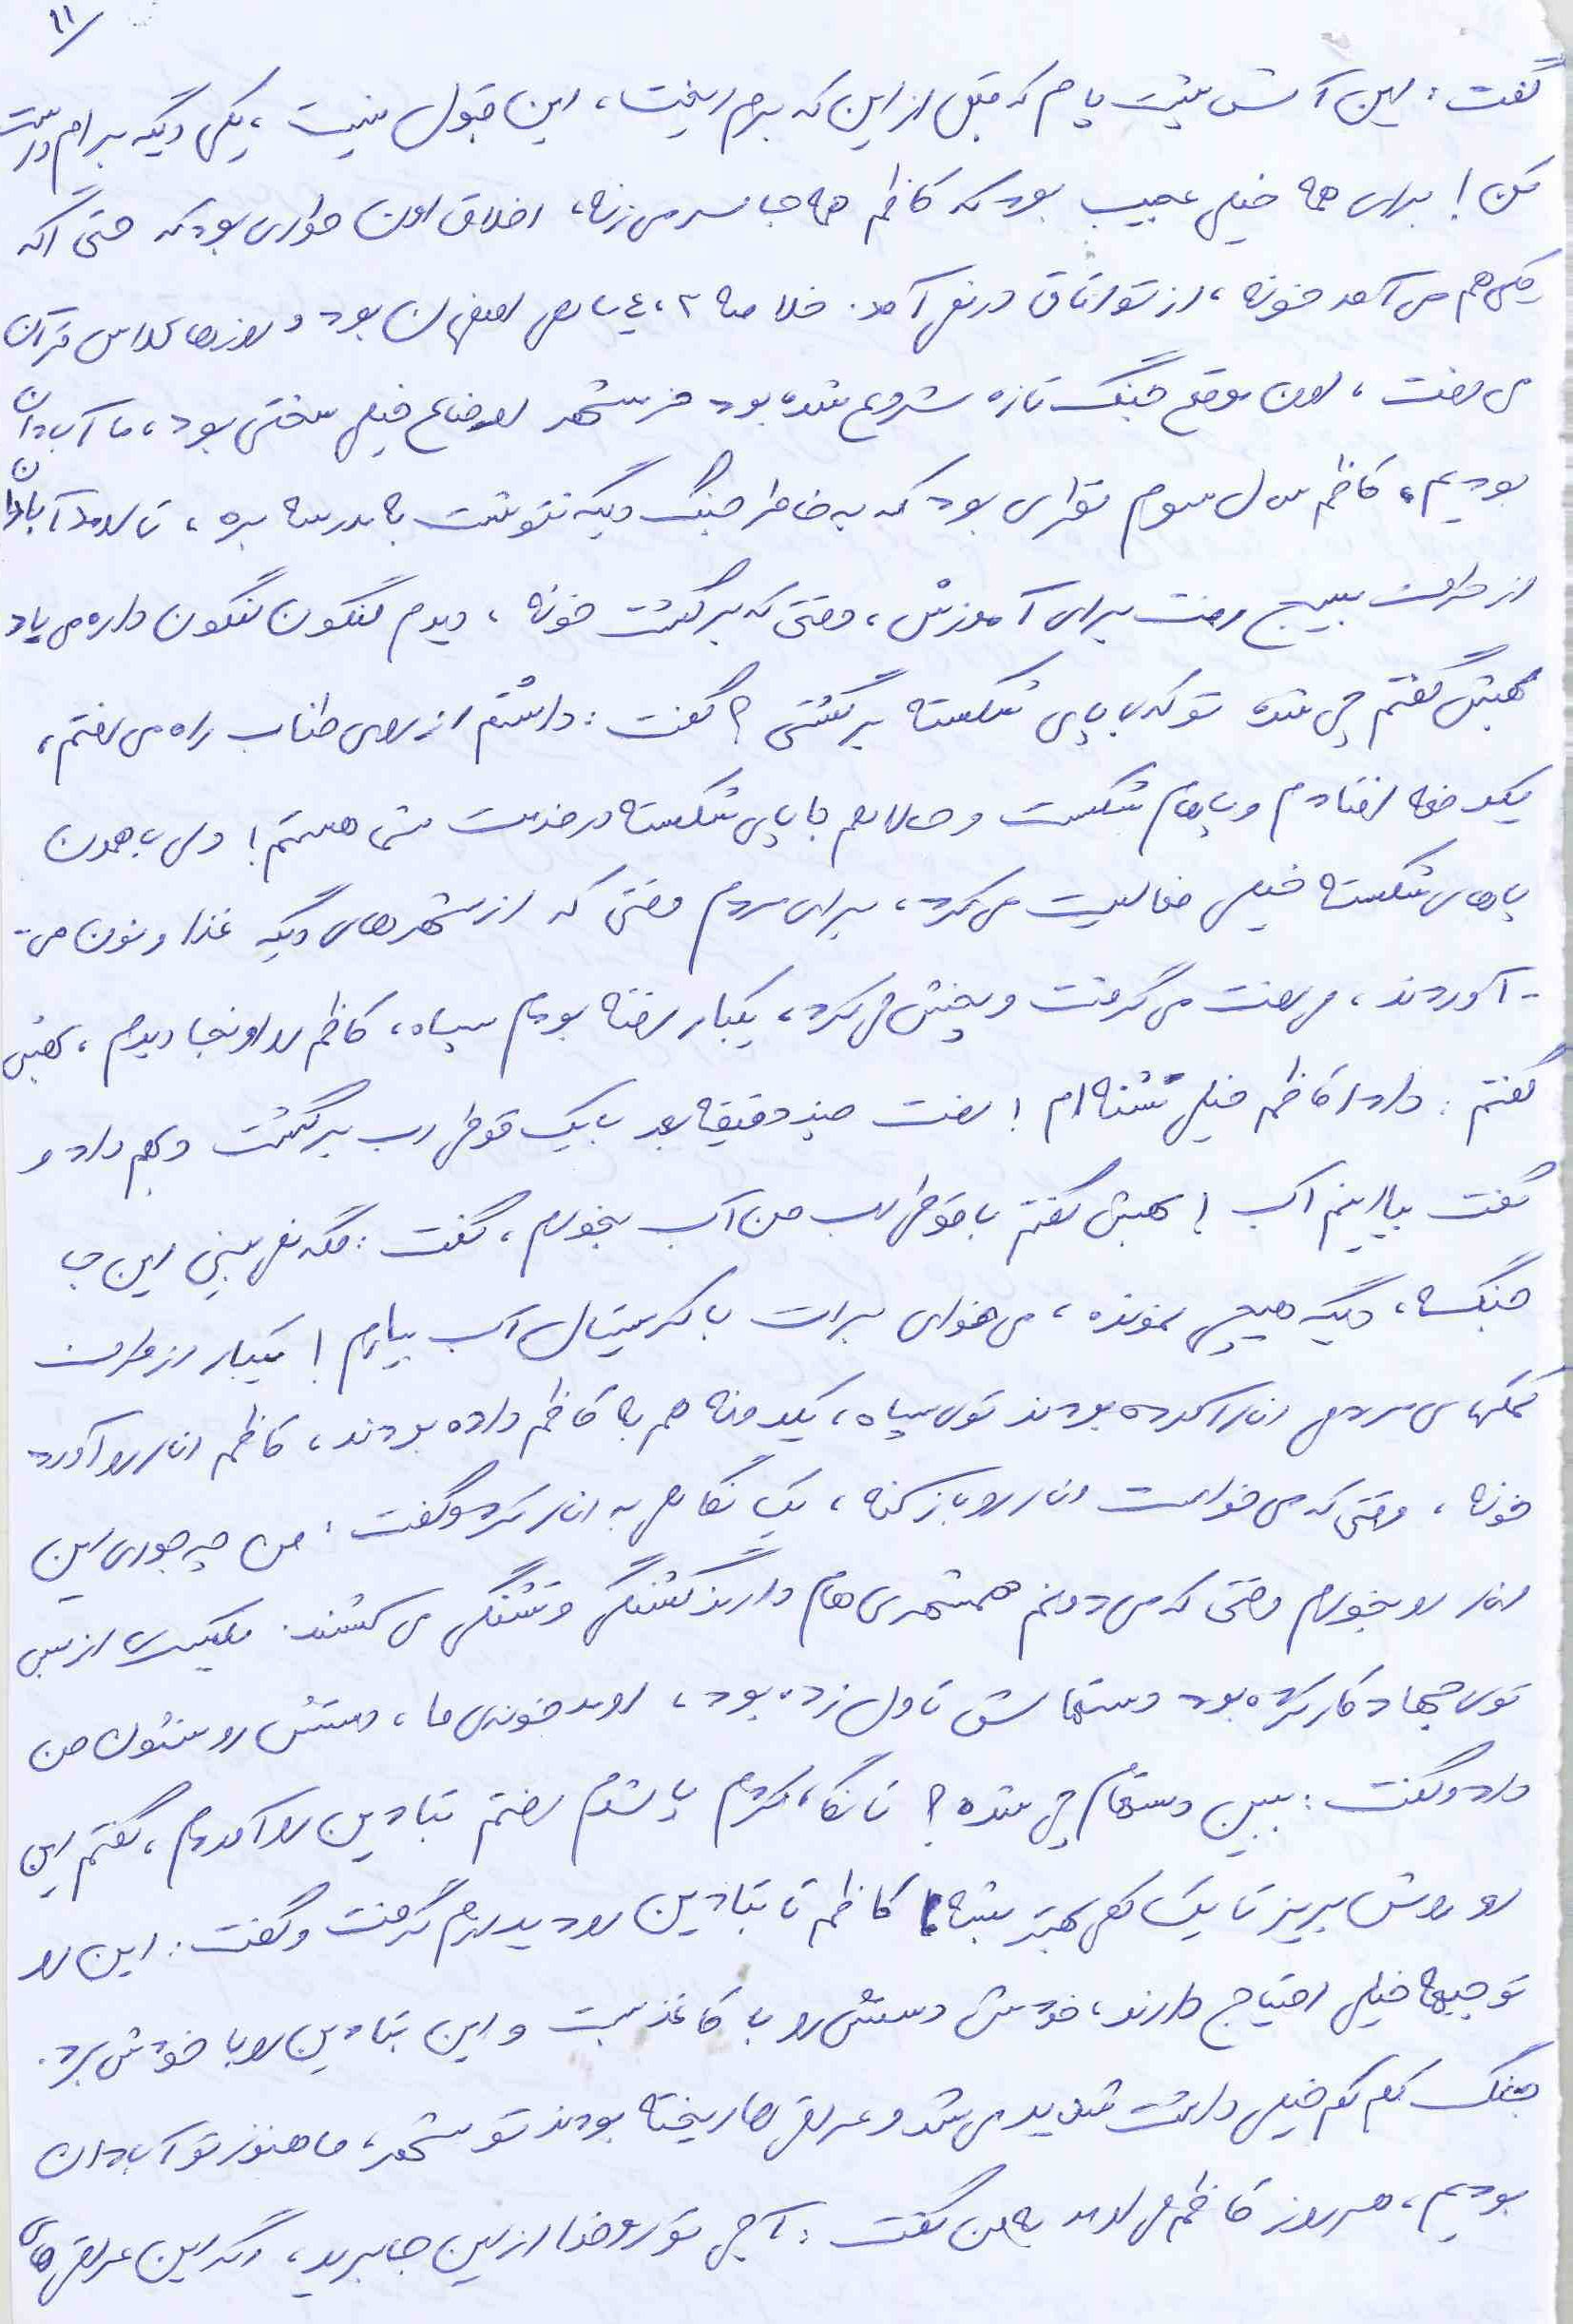 ۱۱/
گفت: این آش پشت پام که قبل از این که برم ریخت، این قبول نیست، یکی دیگه برام درست
کن! برای همه خیلی عجیب بود که کاظم همه جا سر می‌زنه، اخلاق اون جوری بود که حتی اگه
یکی هم می‌آمد خونه، از تو اتاق در نمی‌آمد. خلاصه ۲، ۴ سالی اصفهان بود و روزها کلاس قرآن
می‌رفت، اون موقع جنگ تازه شروع شده بود خرمشهر اوضاع خیلی سختی بود، ما آبادان
بودیم، کاظم سال سوم نظری بود که به خاطر جنگ دیگه نتونست به مدرسه بره، تا اومد آبادان
از طرف بسیج رفت برای آموزش، وقتی که برگشت خونه، دیدم لنگون لنگون داره می‌یاد
بهش گفتم چی شده تو که با پای شکسته برگشتی؟ گفت: داشتم از روی طناب راه می‌رفتم،
یکدفعه افتادم و پاهام شکست و حالا هم با پای شکسته در خدمت شما هستم! ولی با همون
پاهای شکسته خیلی فعالیت می‌کرد، برای مردم وقتی که از شهرهای دیگه غذا و نون می-
-آوردند، می‌رفت می‌گرفت و پخش می‌کرد، یکبار رفته بودم سپاه، کاظم رو اونجا دیدم، بهش
گفتم: دادا کاظم خیلی تشنه‌ام! رفت چند دقیقه بعد با یک قوطی رب برگشت و بهم داد و
گفت بیا اینم آب! بهش گفتم با قوطی رب من آب بخورم، گفت: مگه نمی‌بینی این جا
جنگه، دیگه هیچی نمونده، می‌خوای برات با کریستال آب بیارم! یکبار از طرف
کمکهای مردمی انار آورده بودند توی سپاه، یکدونه هم به کاظم داده بودند، کاظم انار رو آورد
خونه، وقتی که می‌خواست انار رو باز کنه، یک نگاهی به انار کرد و گفت: من چه جوری این
انار رو بخورم وقتی که می‌دونم همشهری‌هام دارند گشنگی و تشنگی می‌کشند. یکبار از بس
توی جهاد کار کرده بود دستهاش تاول زده بود، اومد خونه‌ی ما، دستش رو نشون من
داد و گفت: ببین دستهام چی شده؟ تا نگاه کردم پا شدم رفتم بتادین رو آوردم، گفتم این
رو روش بریز تا یک کمی بهتر بشه! کاظم تا بتادین رو دید ازم گرفت و گفت: این رو
تو جبهه خیلی احتیاج دارند، خودش دستش رو با کاغذ بست و این بتادین رو با خودش برد.
جنگ کم کم خیلی داشت شدید می‌شد و عراقی‌ها ریخته بودند تو شهر، ما هنوز تو آبادان
بودیم، هر روز کاظم می‌اومد به من گفت: آجی تو رو خدا از این جا برید، اگه این عراقی‌های